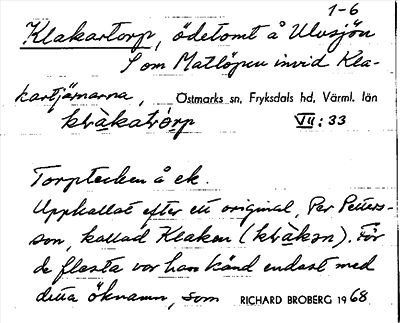 1-6
Klakartorp, ödetomt å Ulvsjön
S om Matlöpen invid Kla-
kartjärnarna, Östmarks sn, Fryksdals hd, Värml. län
klàkatórp VII: 33
Torptecken å ek.
Uppkallat efter ett original, Per Petters-
son, kallad Klaken (klàkən). För
de flesta var han känd endast med
detta öknamn, som RICHARD BROBERG 1968